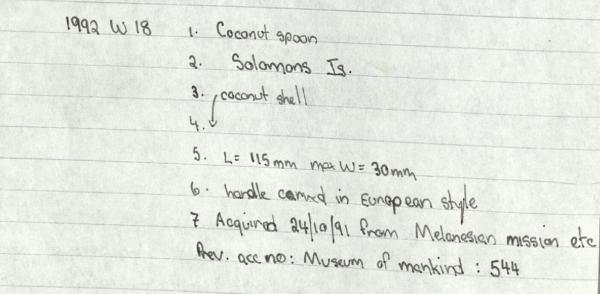 1992 W 18 1. Coconut spoon
2. Solomons Is.
3. coconut shell
4.
5. L= 115mm max W= 30mm
6. handle carved in European style
7 Acquired 24/10/91 from Melanesian mission etc
Prev. acc no: Museum of mankind : 544